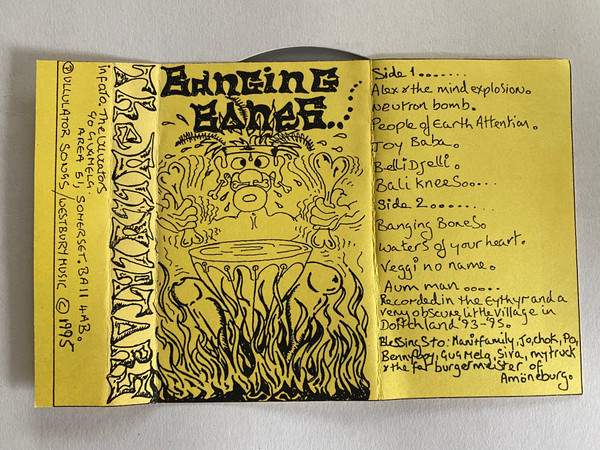 info to. The Ullulators
AREA 51, SOMERSET. BA11 4AB.
℗ ULLULATOR SONGS / WESTBURY MUSIC © 1995
THE ULLULATORS
BANGING
BONES......
Side 1.......
Alex & the mind explosion.
Neutron bomb.
People of Earth Attention.
Joy Baba.
Belli Djelli.
Bali KneeSo....
Side 2.....
Banging BoneS.
Waters of your heart.
Veggi no name.
Aum man .....
Recorded in the Eythyr and a
very obscure little village in
Doitchland '93-95.
Blessings to: Manitfamily, Jo, chok, Po,
Bennyboy, Gug Melg, Siva, my truck
& the fat burgermeister of
Amöneburg.